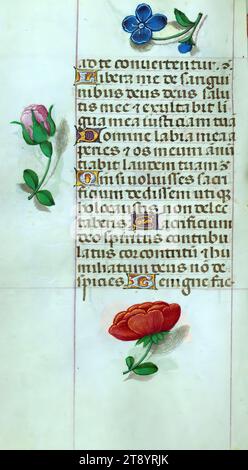 ad te convertentur &
Libera me de sangui
nibus deus deus salu
tis mee & exultabit lī
gua mea iusticiam tuā
Domine labia mea a
peries & os meum annū
ciabit laudem tuam
Qm̄ si voluisses sacri
ficium dedissem utiq
holocaustis non delec
taberis Sacrificium
deo spiritus contribu
latus cor contritū & hu
miliatum deus nō de
spicies Benigne fac
alamy
Image ID: 2T8YRJK
www.alamy.com